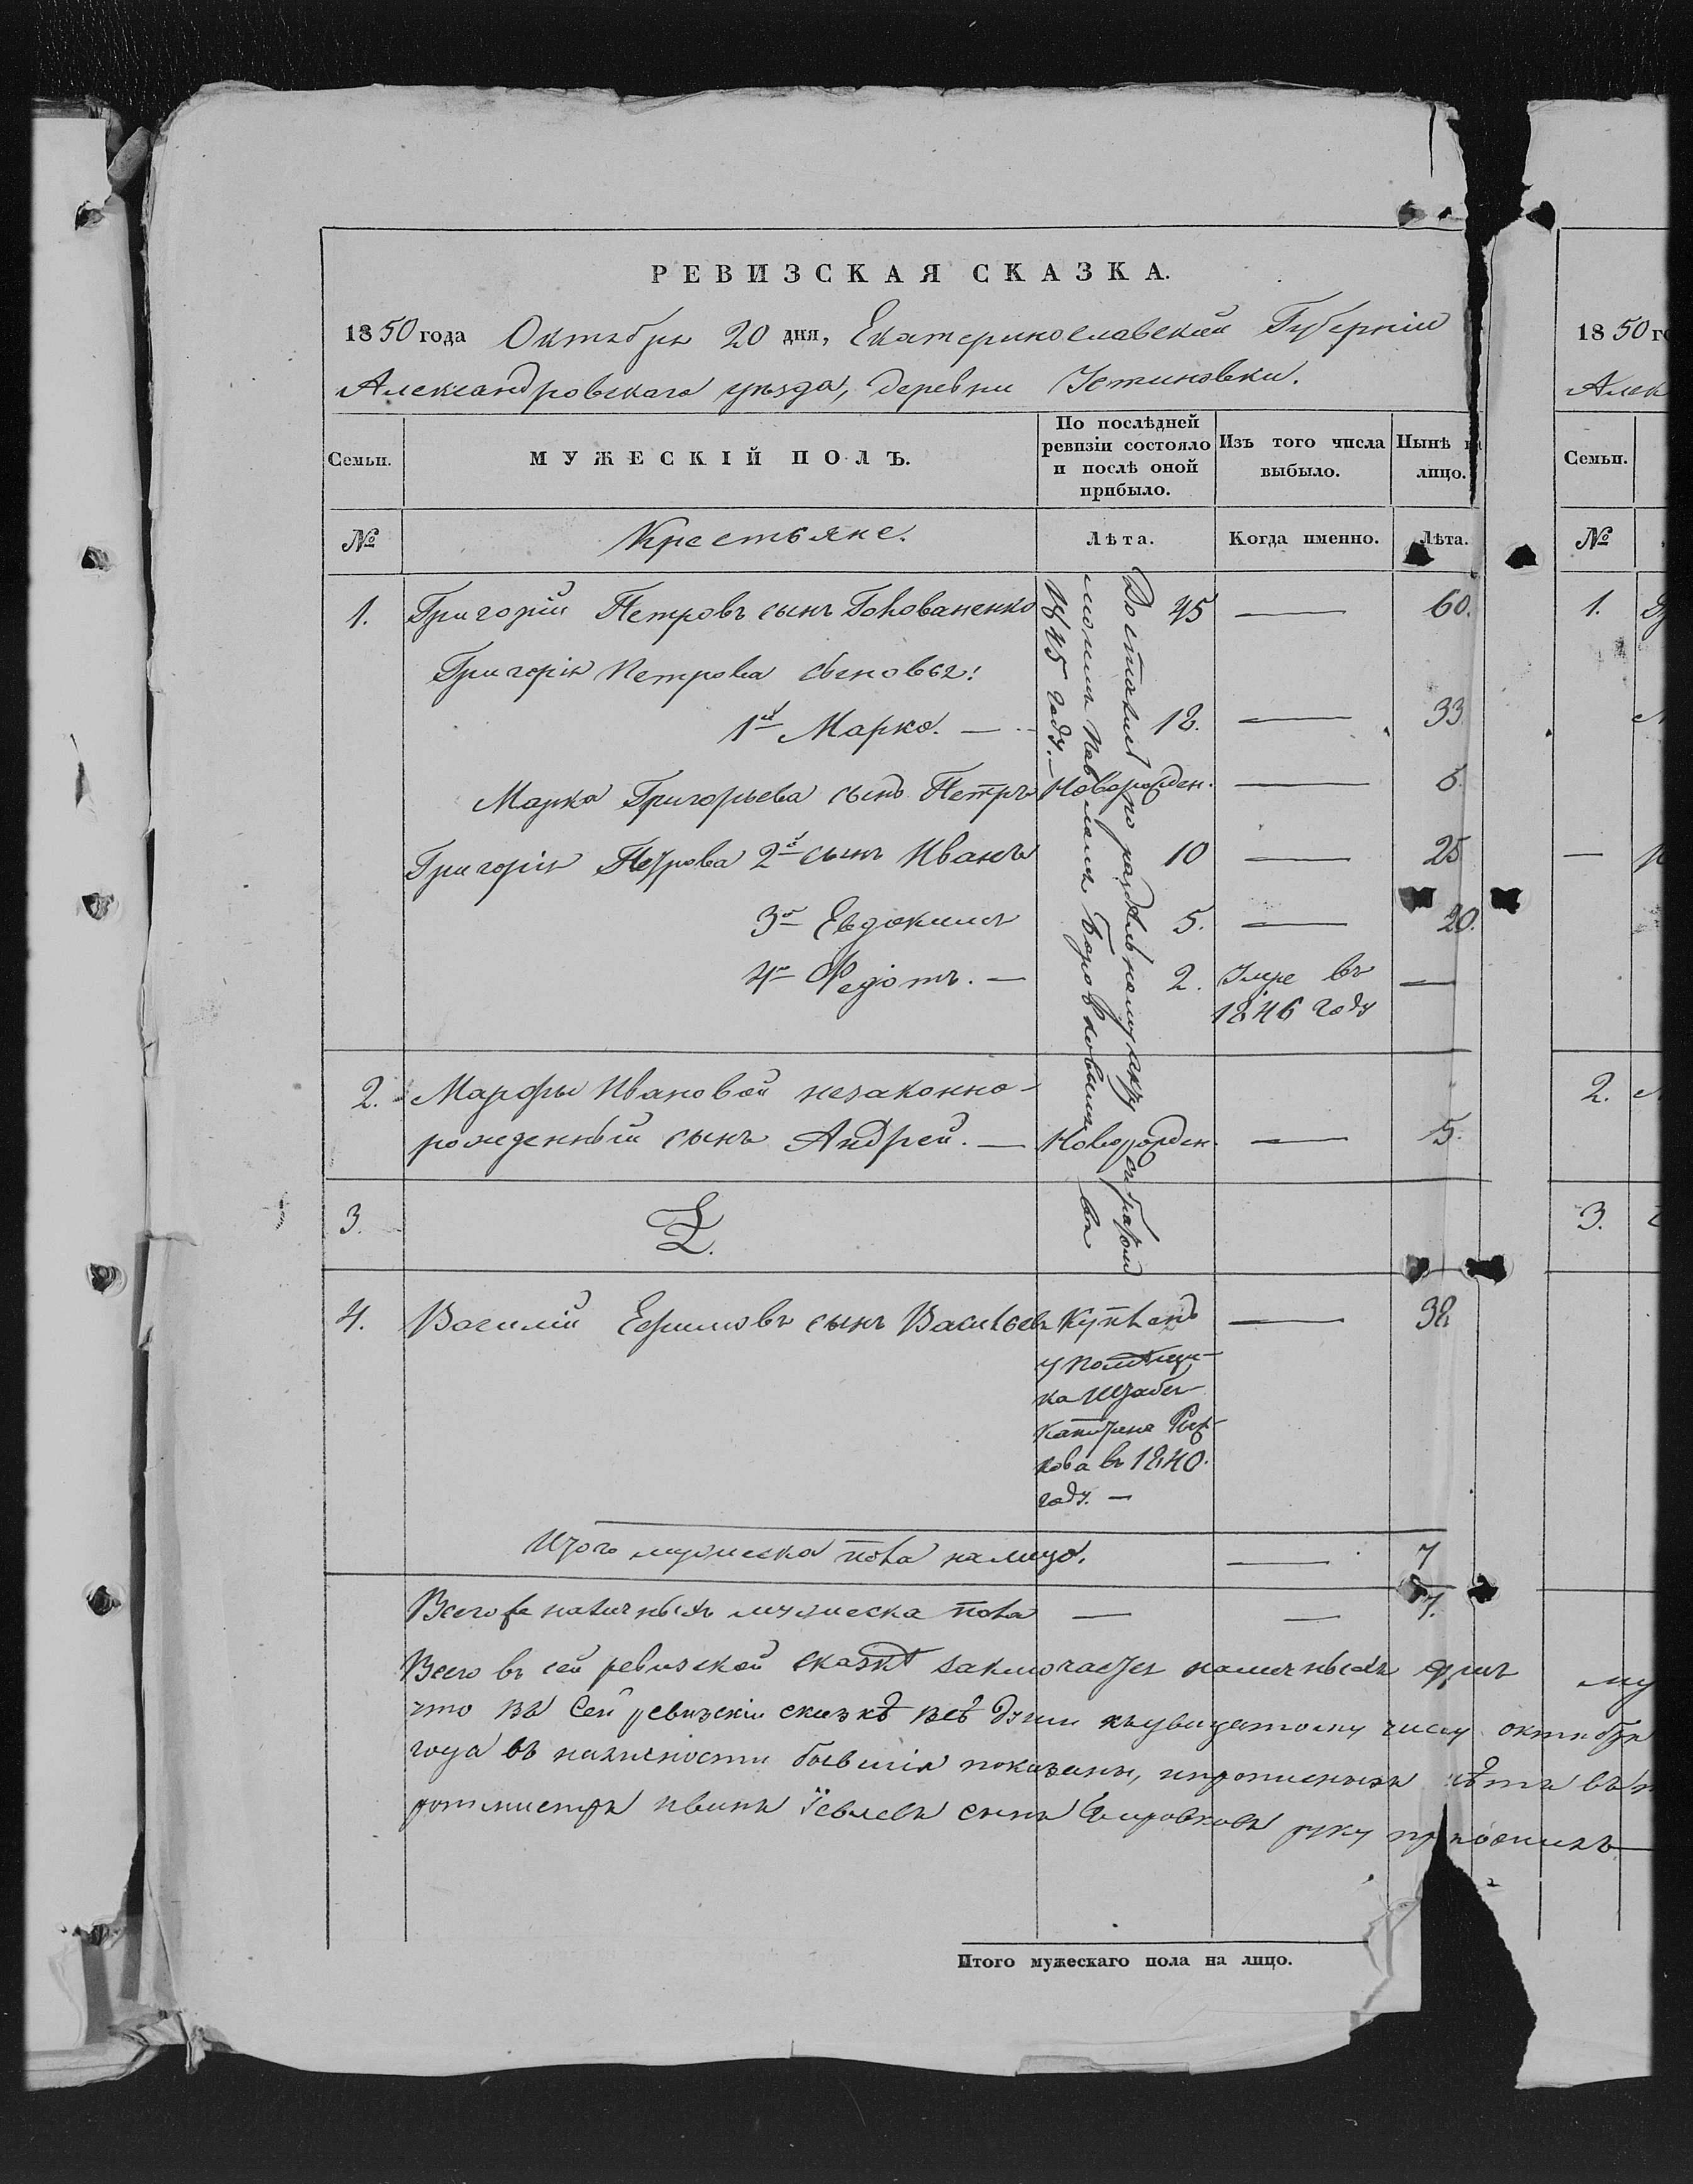 РЕВИЗСКАЯ СКАЗКА.
1850 года Октября 20 дня, Екатеринославской Губерніи
Александровскаго уезда, деревни Устиновки.
Семьи.
МУЖЕСКІЙ ПОЛЪ.
По послѣдней ревизіи состояло и послѣ оной прибыло.
Изъ того числа выбыло.
Нынѣ на лицо.
№
Крестьяне.
Лѣта.
Когда именно.
Лѣта.
1. Григорій Петровъ сынъ Голованенко 45 — 60.
Григорія Петрова сыновья:
1й Марко. — 18. — 33
Марка Григорьева сынъ Петръ Новорожден. — 5.
Григорія Петрова 2й сынъ Иванъ 10 — 25
3й Евдокимъ 5. — 20.
4й Федотъ. — 2. Умре въ —
1846 году
Достались по раздѣльному акту съ братомъ
моимъ Павломъ Боровковымъ въ
1845 году. —
2. Марфы Ивановой незаконно-
рожденный сынъ Андрей. — Новорожден. — 5.
3.
4. Василій Ефимовъ сынъ Васильевъ Купленъ — 38
у помѣщи-
ка Штабсъ
Капитана
кова въ 1840.
году. —
Итого мужеска пола налицо. — 7
Всего наличныхъ мужеска пола — — 7.
Всего въ сей ревизской сказкѣ заключается наличныхъ душъ му
что въ сей ревизскіи сказкѣ всѣ души къ двацатому числу октября
года въ наличности бывшія показаны, и прописныхъ нѣтъ въ т
ротмистръ Иванъ Іевлевъ сынъ Боровковъ руку приложилъ
Итого мужескаго пола на лицо.
1850 го
Алек
Семьи.
№
1.
—
2.
3.